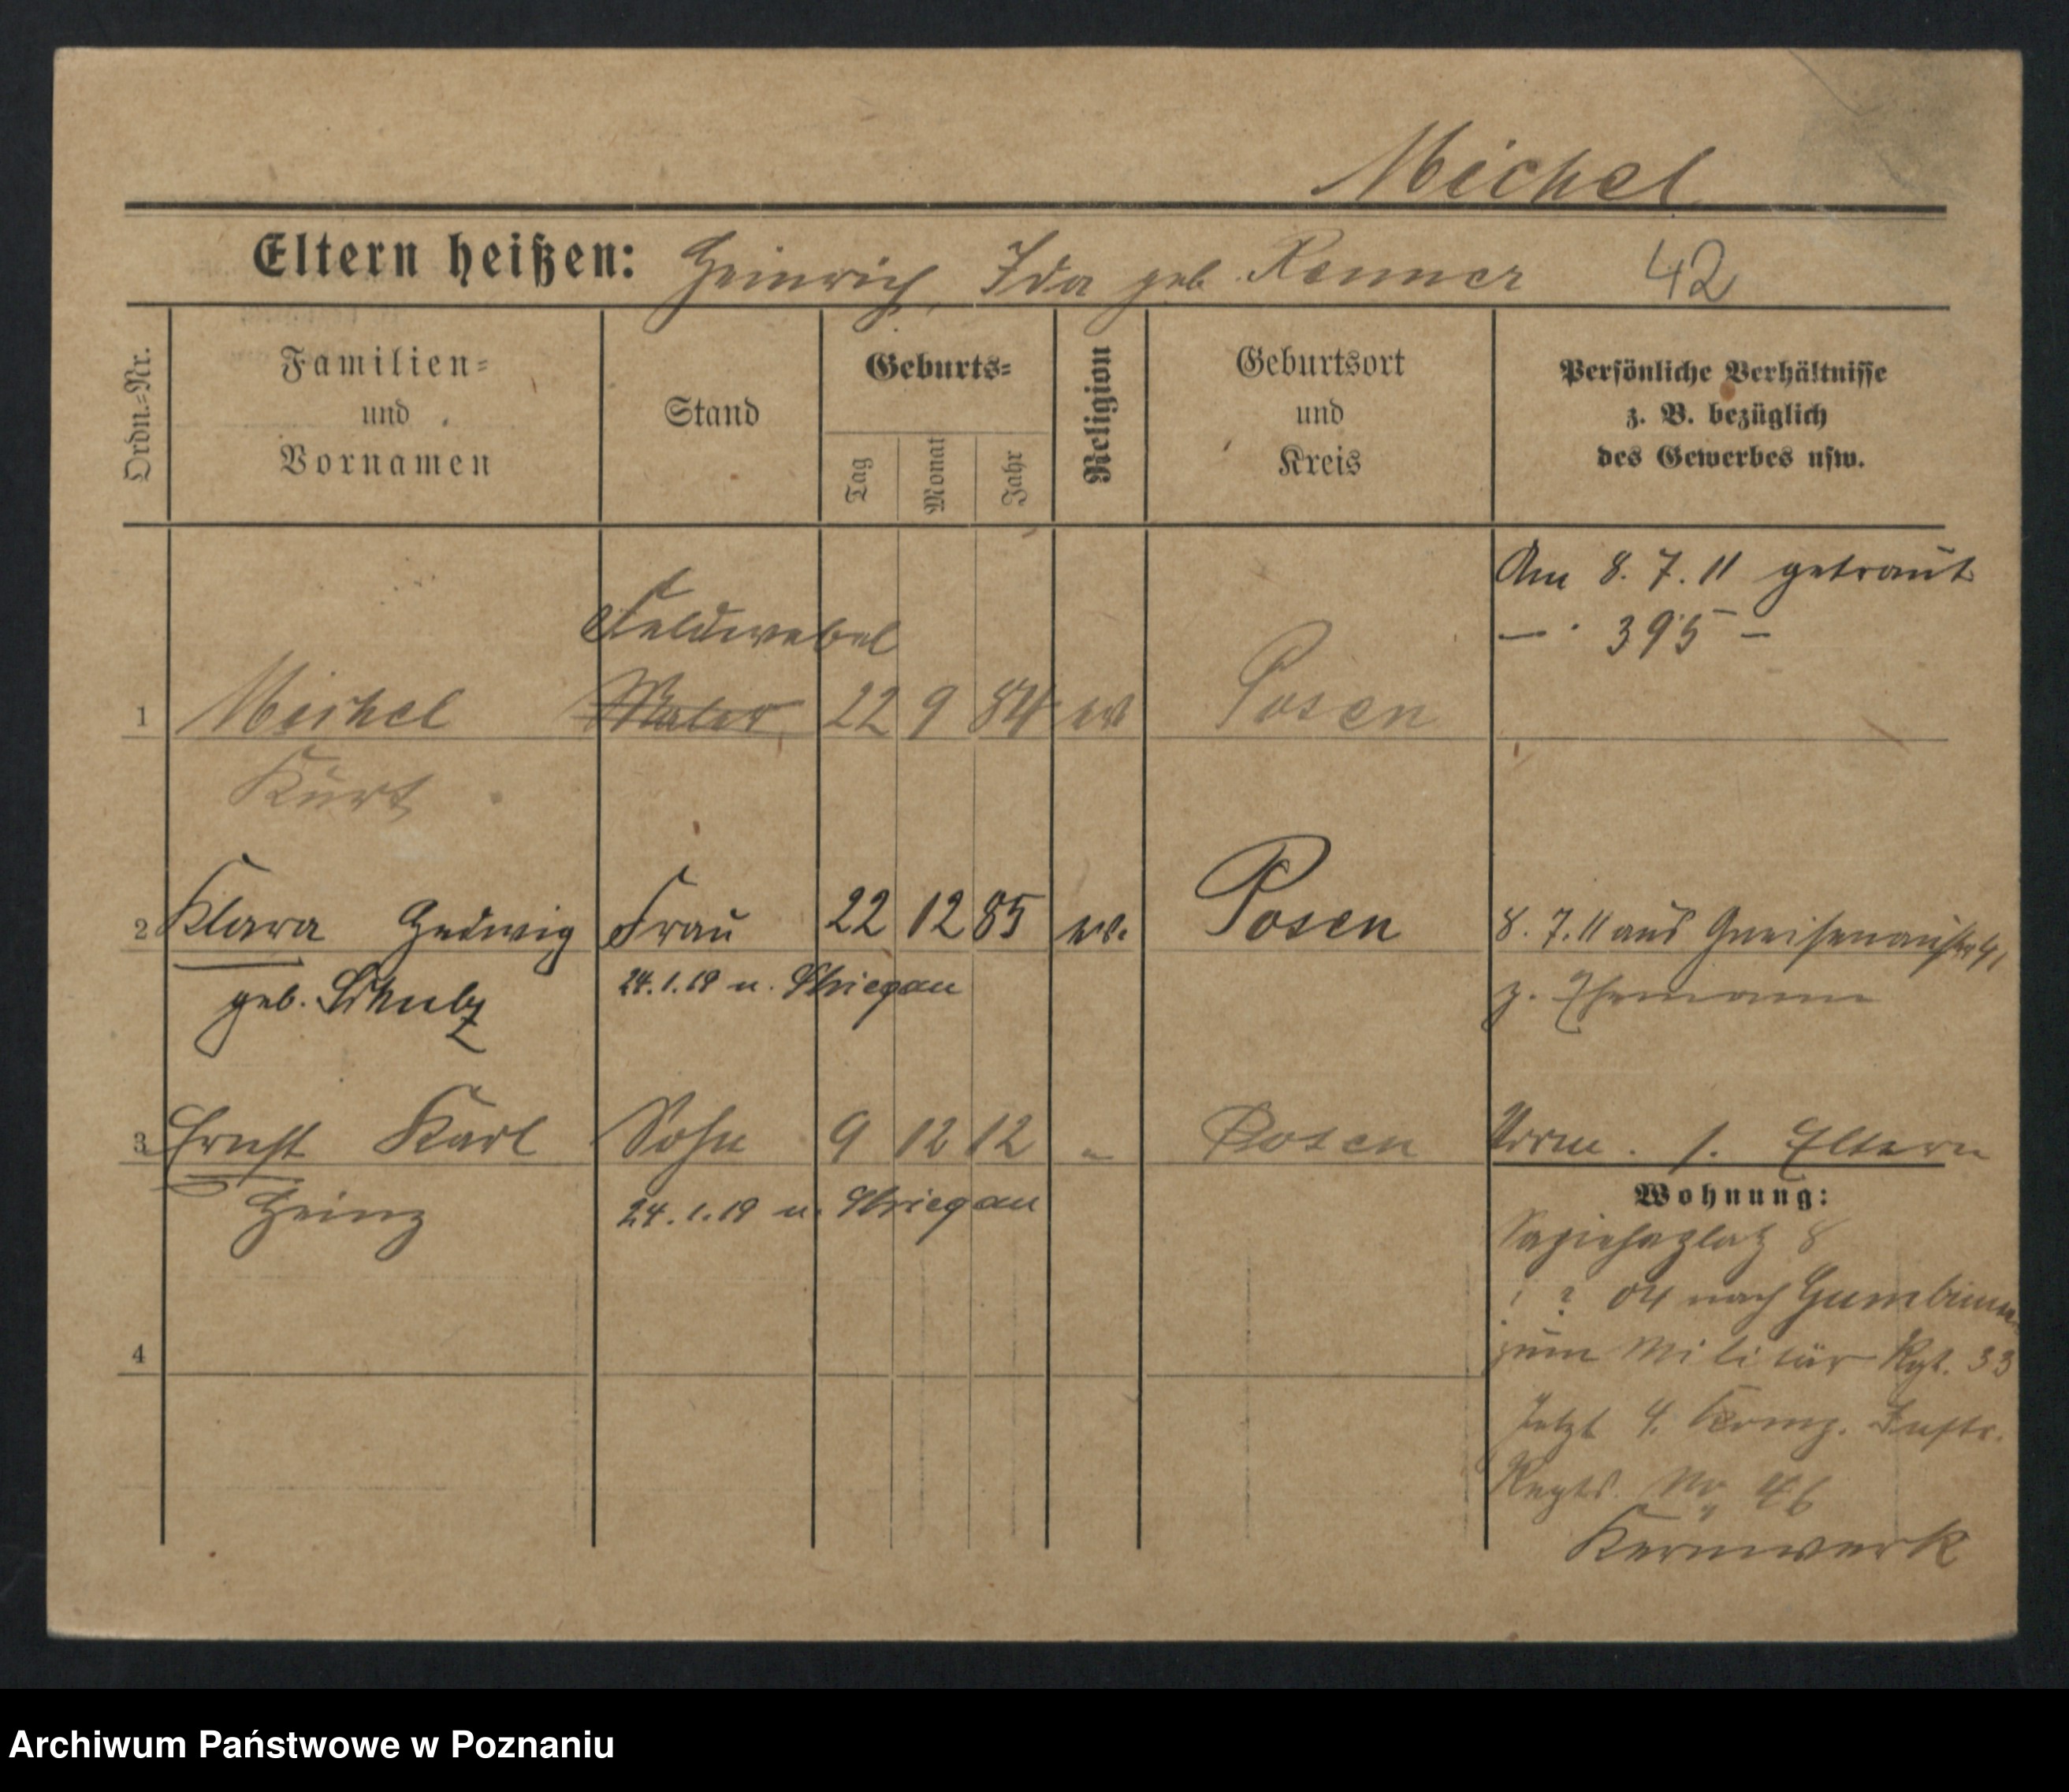 Michel
Eltern heißen: Heinrich, Ida geb. Renner 42
Ordn.-Nr.
Familien-
und
Vornamen
Stand
Geburts-
Tag
Monat
Jahr
Religion
Geburtsort
und
Kreis
Persönliche Verhältnisse
z. B. bezüglich
des Gewerbes usw.
Am 8. 7. 11 getraut
— 395 —
Feldwebel
1 Michel Maler 22 9 84 ev Posen
Kurt
2 Klara Hedwig Frau 22 12 85 ev. Posen 8. 7. 11 aus Gneisenaustr 4,
geb. Schulz 24.1.19 n. Striegau z. Ehemann
3 Ernst Karl Sohn 9 12 12 " Posen Verm. s. Eltern
Heinz 24.1.19 n. Striegau
Wohnung:
Sapiehaplatz 8
! ? 04 nach Gumbinnen
zum Militär Rgt. 33
4
Jetzt 4. Komp. Inftr.
Regts. Nr 46
Kernwerk
Archiwum Państwowe w Poznaniu